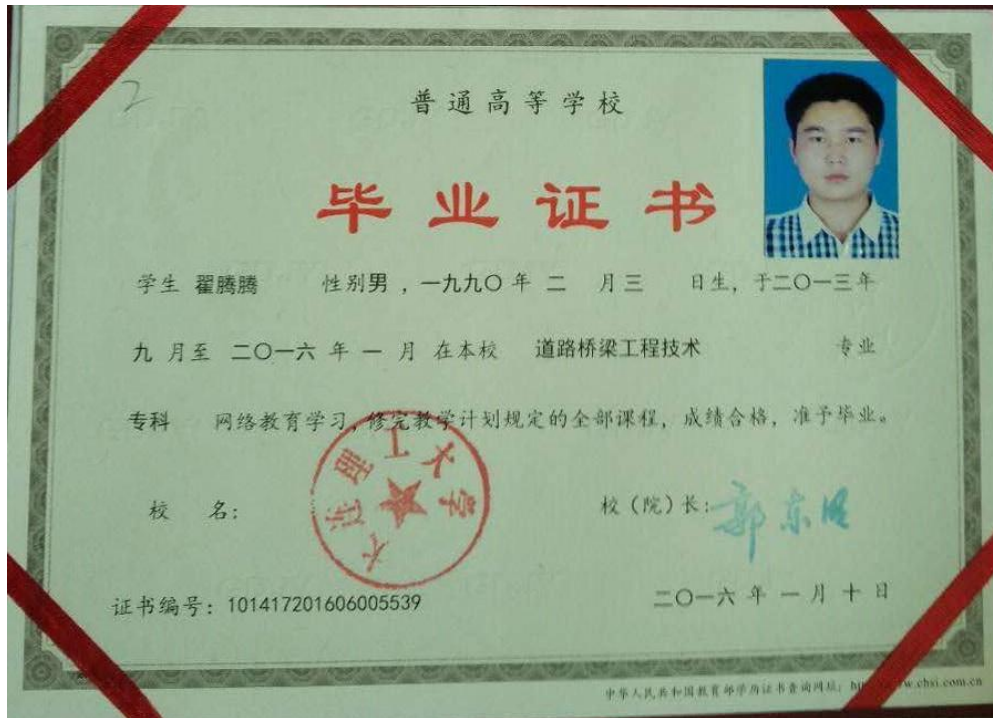 2
普通高等学校
毕业证书
学生 翟腾腾 性别男 ，一九九〇 年 二 月 三 日生，于二〇一三年
九 月至 二〇一六 年 一 月 在本校 道路桥梁工程技术 专业
专科 网络教育学习，修完教学计划规定的全部课程，成绩合格，准予毕业。
大连理工大学
校 名： 校（院）长：郭东明
证书编号：101417201606005539 二〇一六 年 一 月 十 日
中华人民共和国教育部学历证书查询网址：www.chsi.com.cn